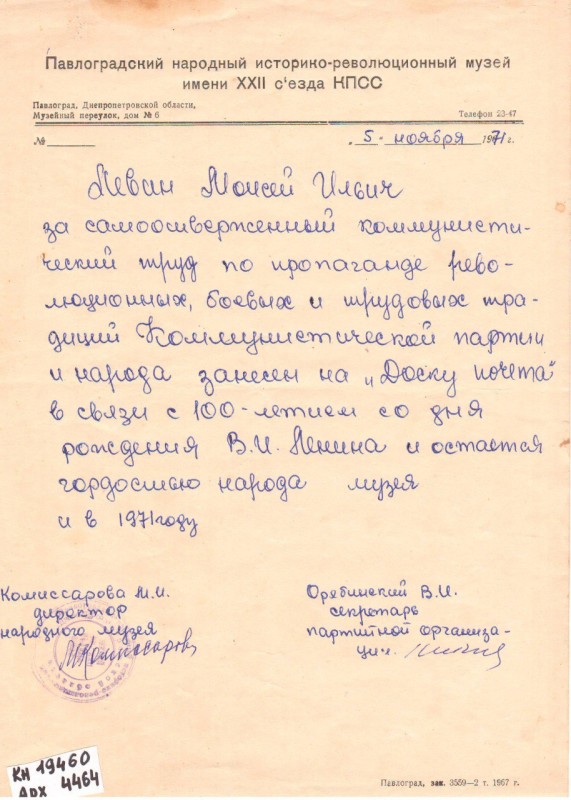 Павлоградский народный историко-революционный музей
имени XXII с'езда КПСС
Павлоград, Днепропетровской области,
Музейный переулок, дом № 6
Телефон 23-47
№
„5- ноября 1971 г.
Леван Моисей Ильич
за самоотверженный коммунисти-
ческий труд по пропаганде рево-
люционных, боевых и трудовых тра-
диций Коммунистической партии
и народа занесен на „Доску почета"
в связи с 100-летием со дня
рождения В.И. Ленина и остается
гордостью народа музея
и в 1971 году
Комиссарова М.И.
директор
народного музея
МКомиссарова
В.И.
секретарь
партийной организа-
ции.
КН 19460
АРХ 4464
Павлоград, зак. 3559—2 т. 1967 г.